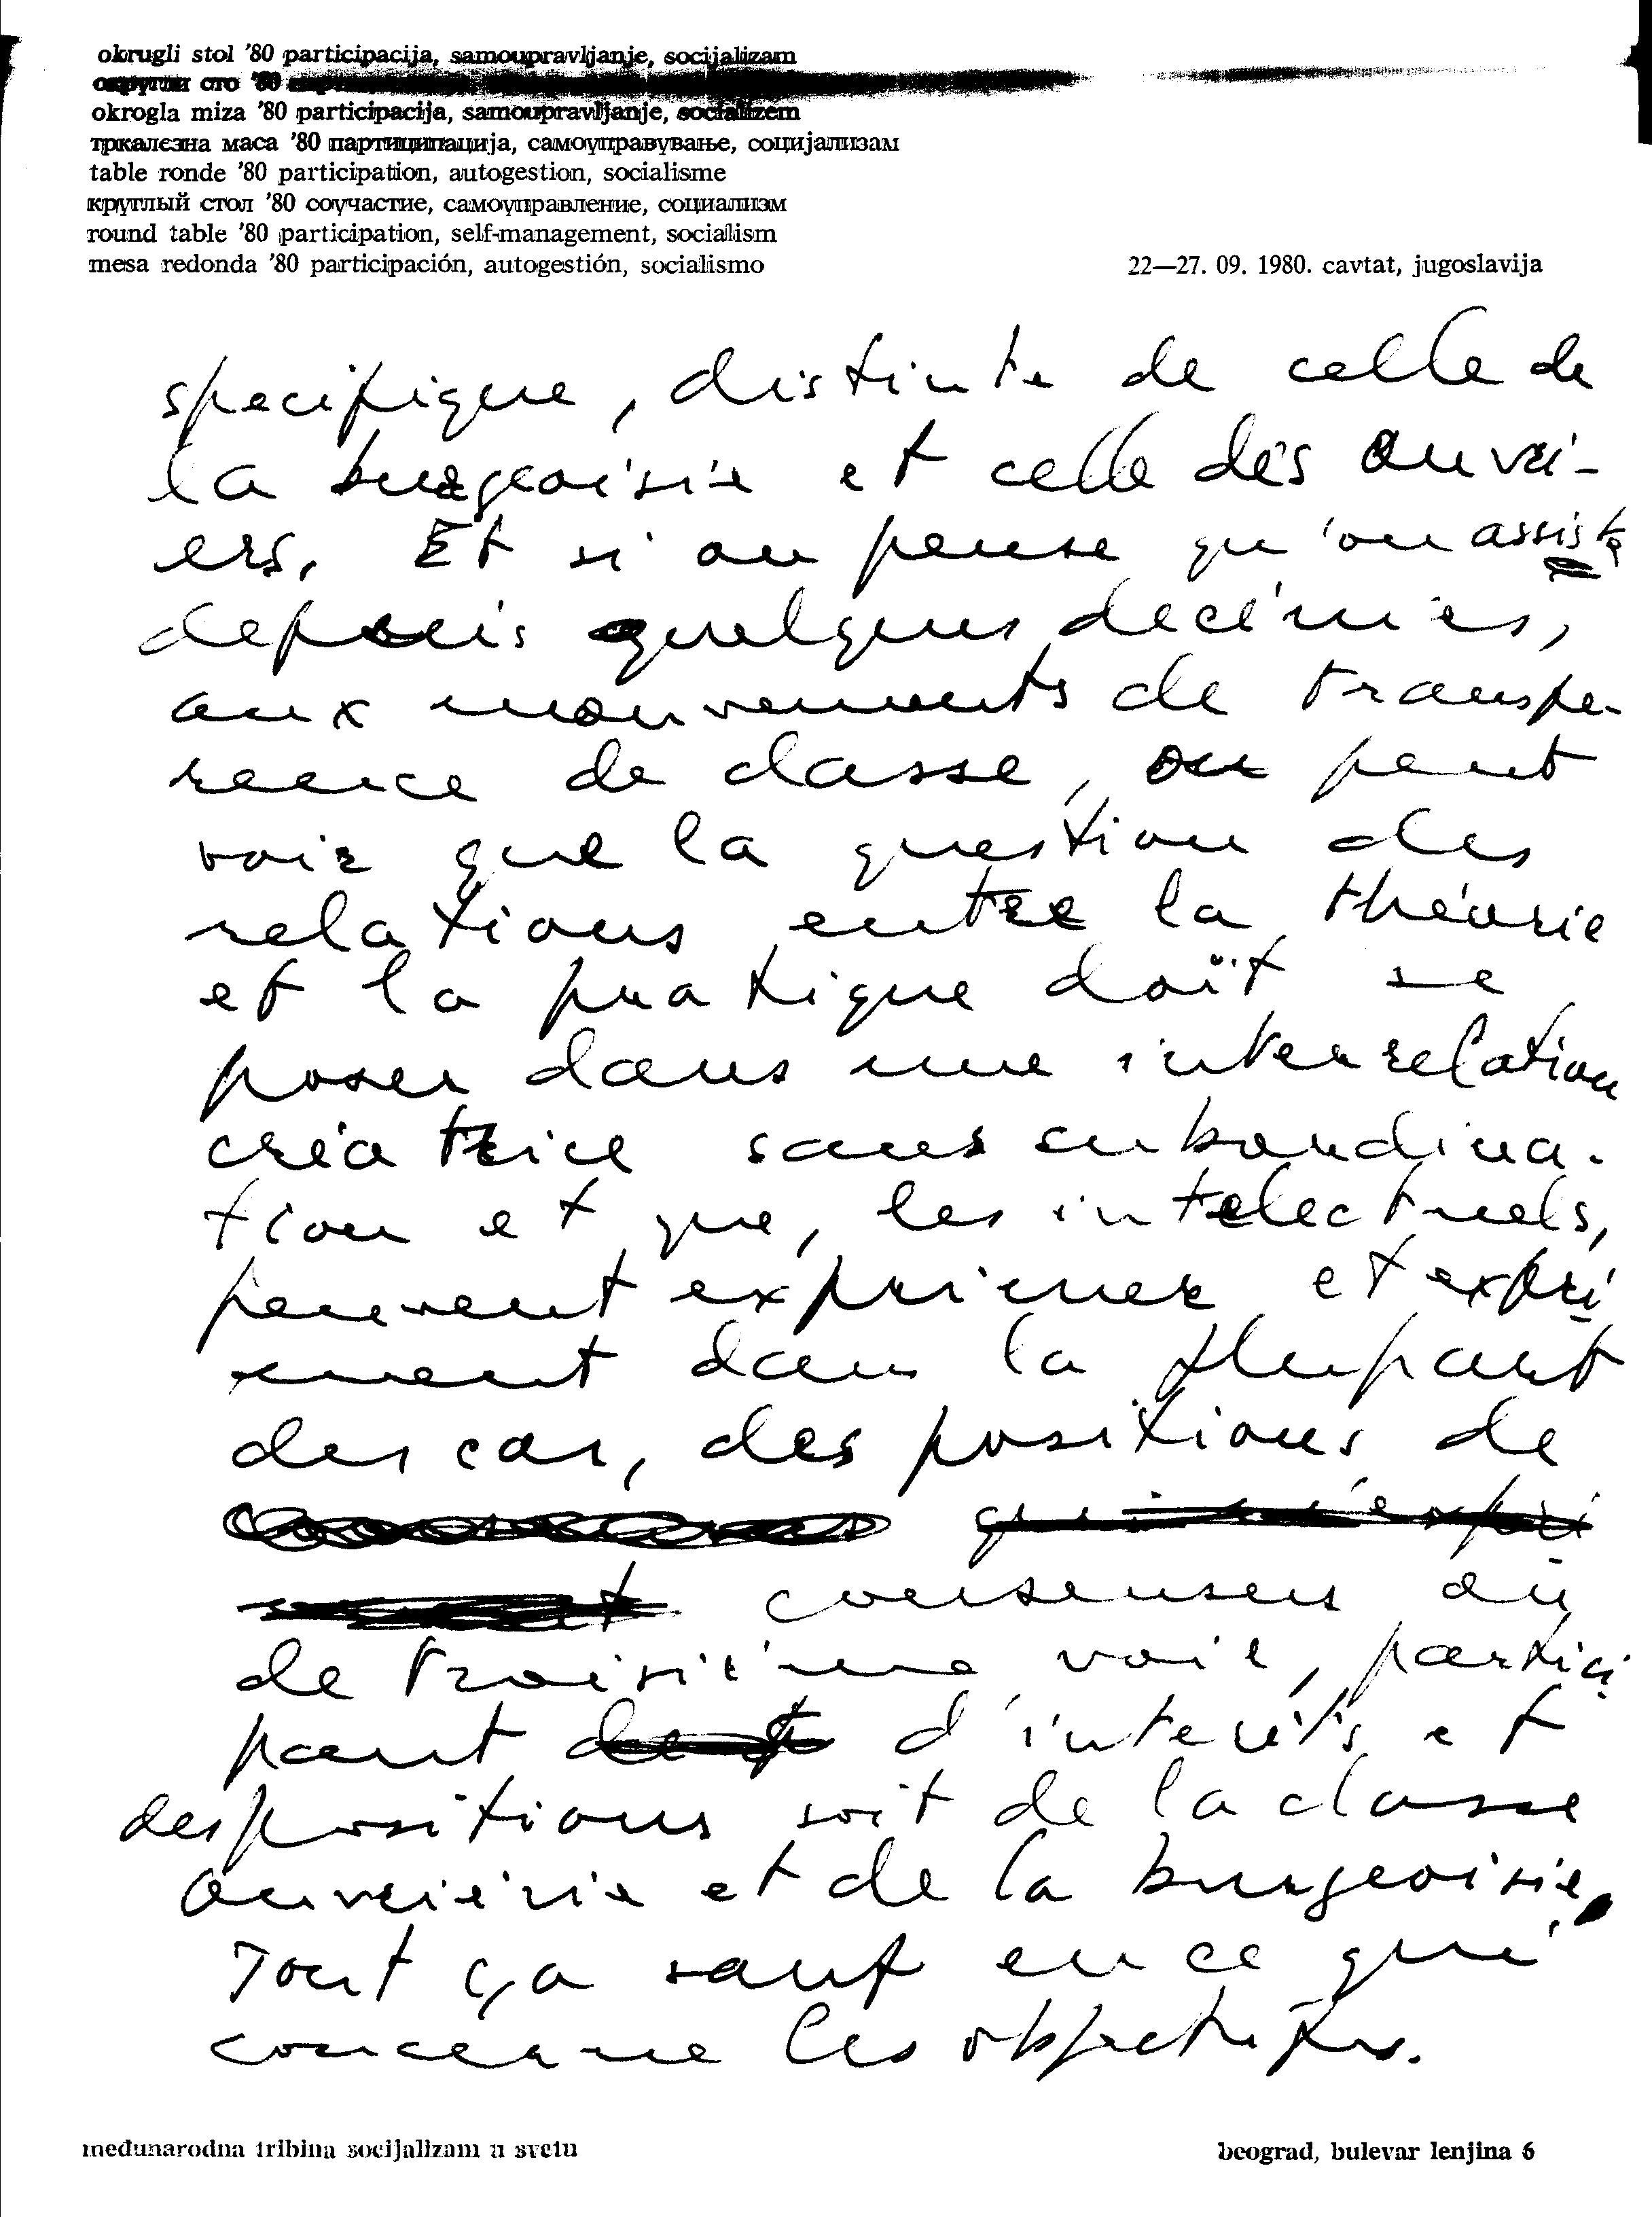 okrugli stol ’80 participacija, samoupravljanje, socijalizam
округли сто ’80
okrogla miza ’80 participacija, samoupravljanje, socializem
тркалезна маса ’80 партиципација, самоуправување, социјализам
table ronde ’80 participation, autogestion, socialisme
круглый стол ’80 соучастие, самоуправление, социализм
round table ’80 participation, self-management, socialism
mesa redonda ’80 participación, autogestión, socialismo
22—27. 09. 1980. cavtat, jugoslavija
specifique, distinte de celle de
la burgeoisie et celle des ouvri-
ers. Et si on pense qu'on assiste
depuis quelques décénies,
aux mouvements de transpe-
rence de classe, on peut
voir que la question des
relations entre la théorie
et la pratique doit se
poser dans une interrelation
créatrice sans subordina-
tion et que, les intelectuels,
peuvent exprimer et expri
ment dans la plupart
des cas, des positions de
consensus ou
de troisième voie, partici
pant d'interêts et
des positions soit de la classe
ouvriérie et de la burgeoisie.
Tout ça sauf en ce qui
concerne les objectifs.
međunarodna tribina socijalizam u svetu
beograd, bulevar lenjina 6